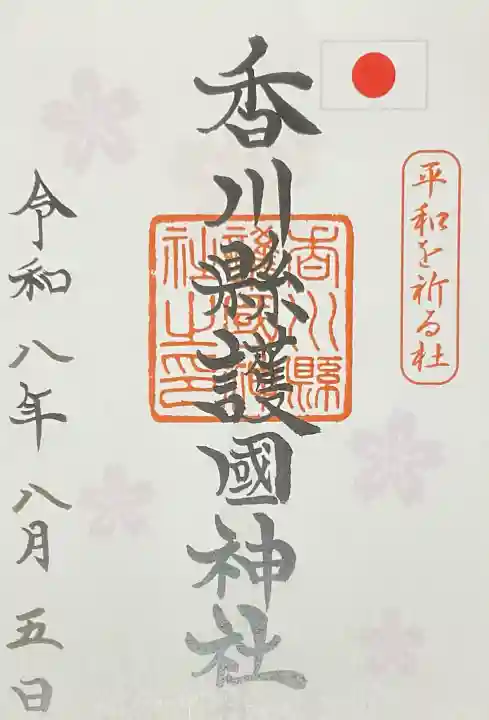 平和を祈る社
香川縣護國神社
香川縣護國神社之印
令和八年八月五日